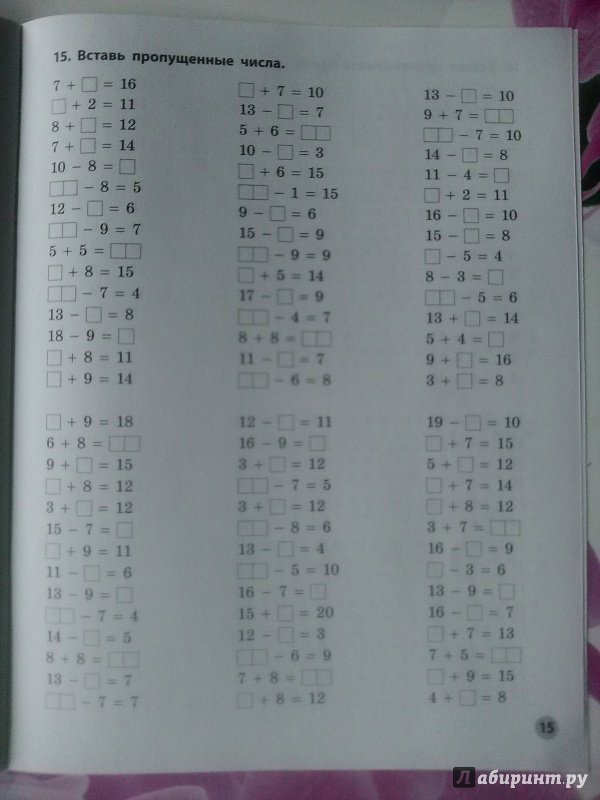 15. Вставь пропущенные числа.
7 + □ = 16
□ + 2 = 11
8 + □ = 12
7 + □ = 14
10 − 8 = □
□□ − 8 = 5
12 − □ = 6
□□ − 9 = 7
5 + 5 = □□
□ + 8 = 15
□□ − 7 = 4
13 − □ = 8
18 − 9 = □
□ + 8 = 11
□ + 9 = 14
□ + 7 = 10
13 − □ = 7
5 + 6 = □□
10 − □ = 3
□ + 6 = 15
□□ − 1 = 15
9 − □ = 6
15 − □ = 9
□□ − 9 = 9
□ + 5 = 14
17 − □ = 9
□□ − 4 = 7
8 + 8 = □□
11 − □ = 7
□□ − 6 = 8
13 − □ = 10
9 + 7 = □□
□□ − 7 = 10
14 − □ = 8
11 − 4 = □
□ + 2 = 11
16 − □ = 10
15 − □ = 8
□ − 5 = 4
8 − 3 = □
□□ − 5 = 6
13 + □ = 14
5 + 4 = □
9 + □ = 16
3 + □ = 8
□ + 9 = 18
6 + 8 = □□
9 + □ = 15
□ + 8 = 12
3 + □ = 12
15 − 7 = □
□ + 9 = 11
11 − □ = 6
13 − 9 = □
□□ − 7 = 4
14 − □ = 5
8 + 8 = □□
13 − □ = 7
□□ − 7 = 7
12 − □ = 11
16 − 9 = □
3 + □ = 12
□□ − 7 = 5
3 + □ = 12
□□ − 8 = 6
13 − □ = 4
□□ − 5 = 10
16 − 7 = □
15 + □ = 20
12 − □ = 3
□□ − 6 = 9
7 + 8 = □□
□ + 8 = 12
19 − □ = 10
□ + 7 = 15
5 + □ = 12
□ + 7 = 14
□ + 8 = 12
3 + 7 = □□
16 − □ = 9
□ − 3 = 6
13 − 9 = □
16 − □ = 7
□ + 7 = 13
7 + 5 = □□
□ + 9 = 15
4 + □ = 8
15
абиринт.ру